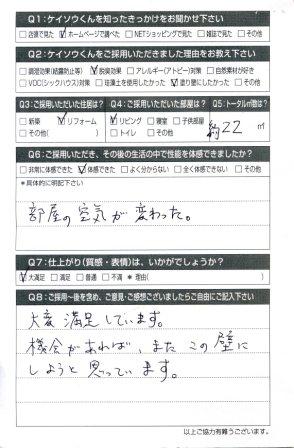 Q1:ケイソウくんを知ったきっかけをお聞かせ下さい
□店頭で見た ☑ホームページで調べた □NETショッピングで見た □雑誌で見た □その他
Q2:ケイソウくんをご採用いただきました理由をお教え下さい
□調湿効果(結露防止等) ☑脱臭効果 □アレルギー(アトピー)対策 □自然素材が好き
□VOC(シックハウス)対策 □珪藻土を使いたかった ☑塗り壁にしたかった □その他
Q3:ご採用いただいた住居は? Q4:ご採用いただいた部屋は? Q5:トータル㎡数は?
□新築 ☑リフォーム ☑リビング □寝室 □子供部屋 約22㎡
□その他( ) □トイレ □その他
Q6:ご採用いただき、その後の生活の中で性能を体感できましたか?
□非常に体感できた ☑体感できた □よく分からない □全く体感できない □その他
*具体的に明記下さい
部屋の空気が変わった。
Q7:仕上がり(質感・表情)は、いかがでしょうか?
☑大満足 □満足 □普通 □不満 *理由( )
Q8:ご採用〜後を含め、ご意見・ご感想ございましたらご自由にご記入下さい
大変満足しています。
機会があれば、またこの壁に
しようと思っています。
以上ご協力有難うございます。